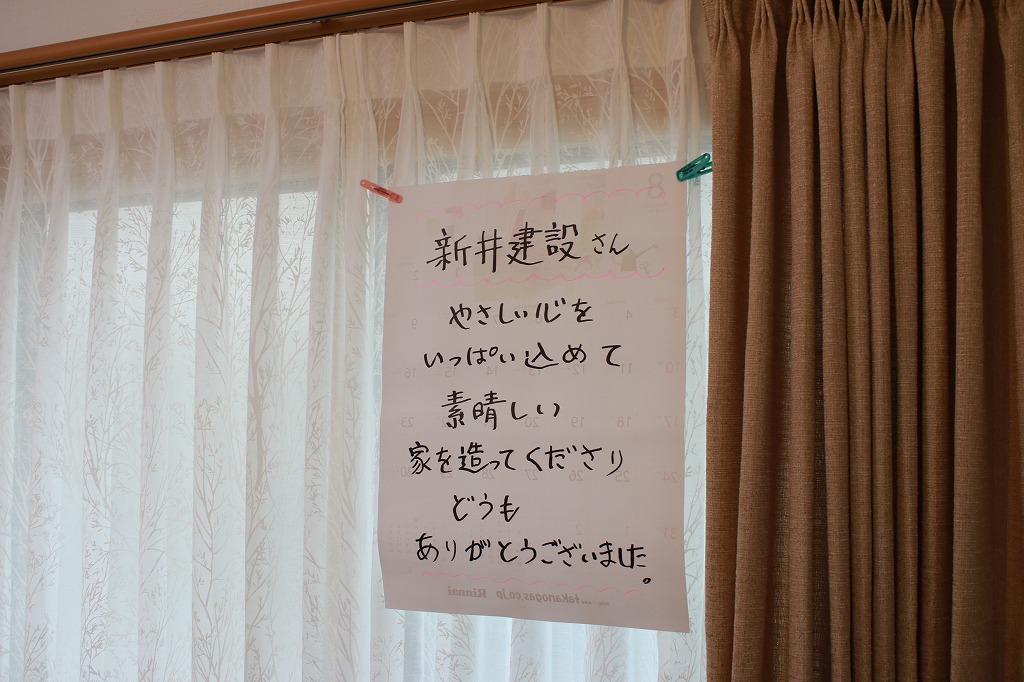 新井建設さん
やさしい心を
いっぱい込めて
素晴しい
家を造ってくださり
どうも
ありがとうございました。
takanogas.co.jp Rinnai